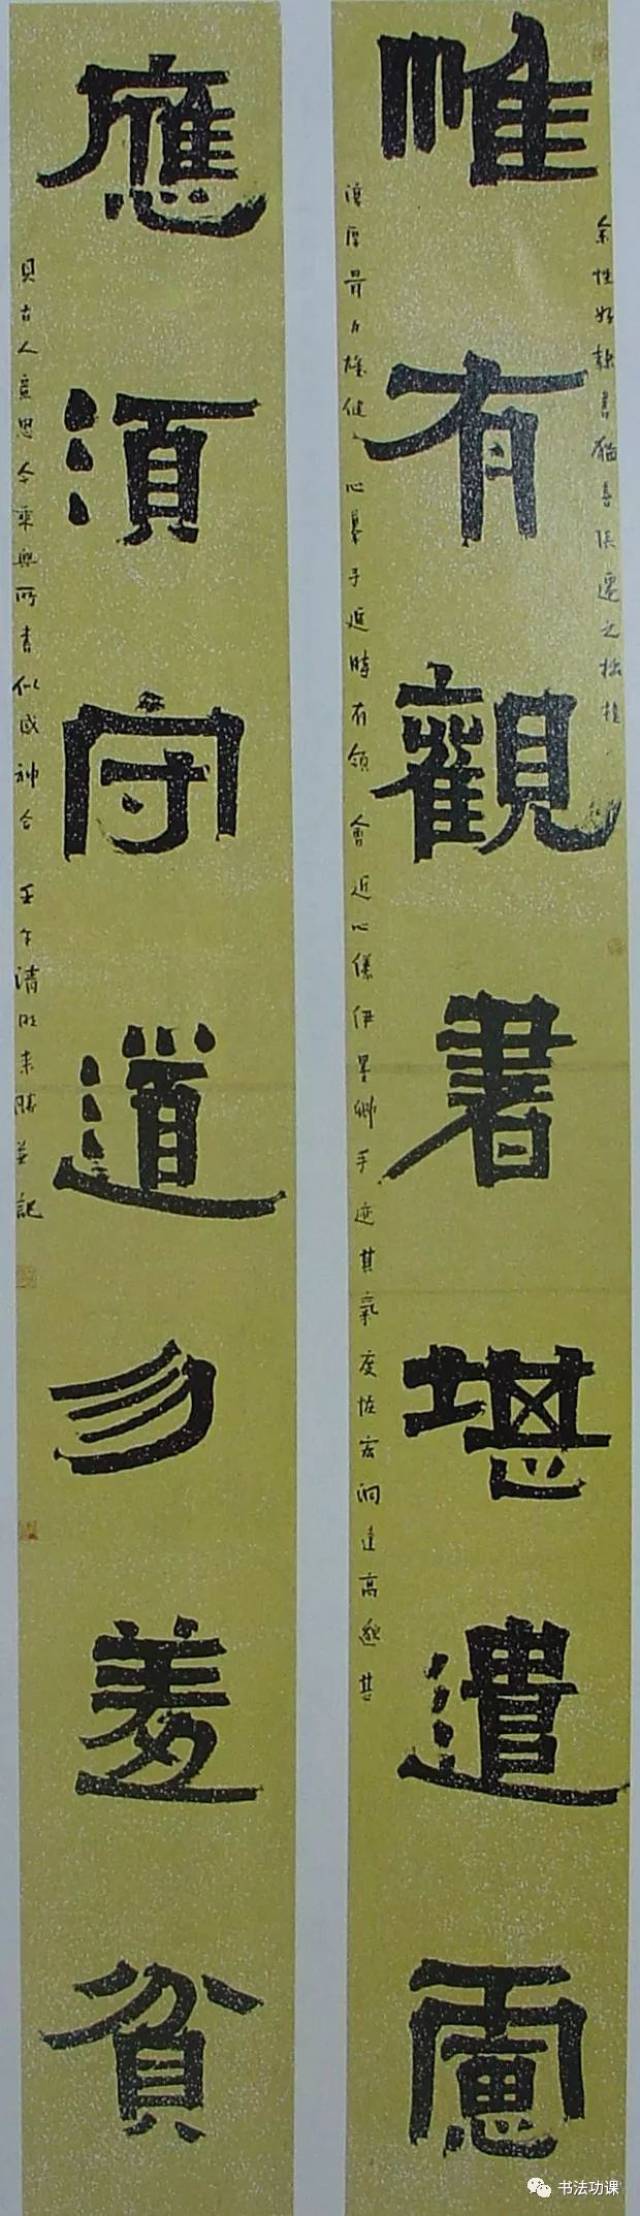 惟有觀書堪遣慮
余性好隸書猶喜張遷之拙樸
厚骨力雄健、心摹手追時有領會近心儀伊墨卿手迹其氣度恢宏洞達高邈其
應須守道勿羞貧
具古人意思今乘興所書似感神合 壬午清明來勝并記
书法功课